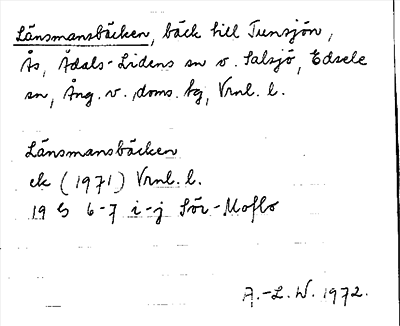 Länsmansbäcken, bäck till Tunsjön,
Ås, Ådals-Lidens sn o. Salsjö, Edsele
sn, Ång. v. doms. tg, Vrnl. l.
Länsmansbäcken
ek (1971) Vrnl. l.
19 G 6-7 i-j Sör-Moflo
A.-L. W. 1972.